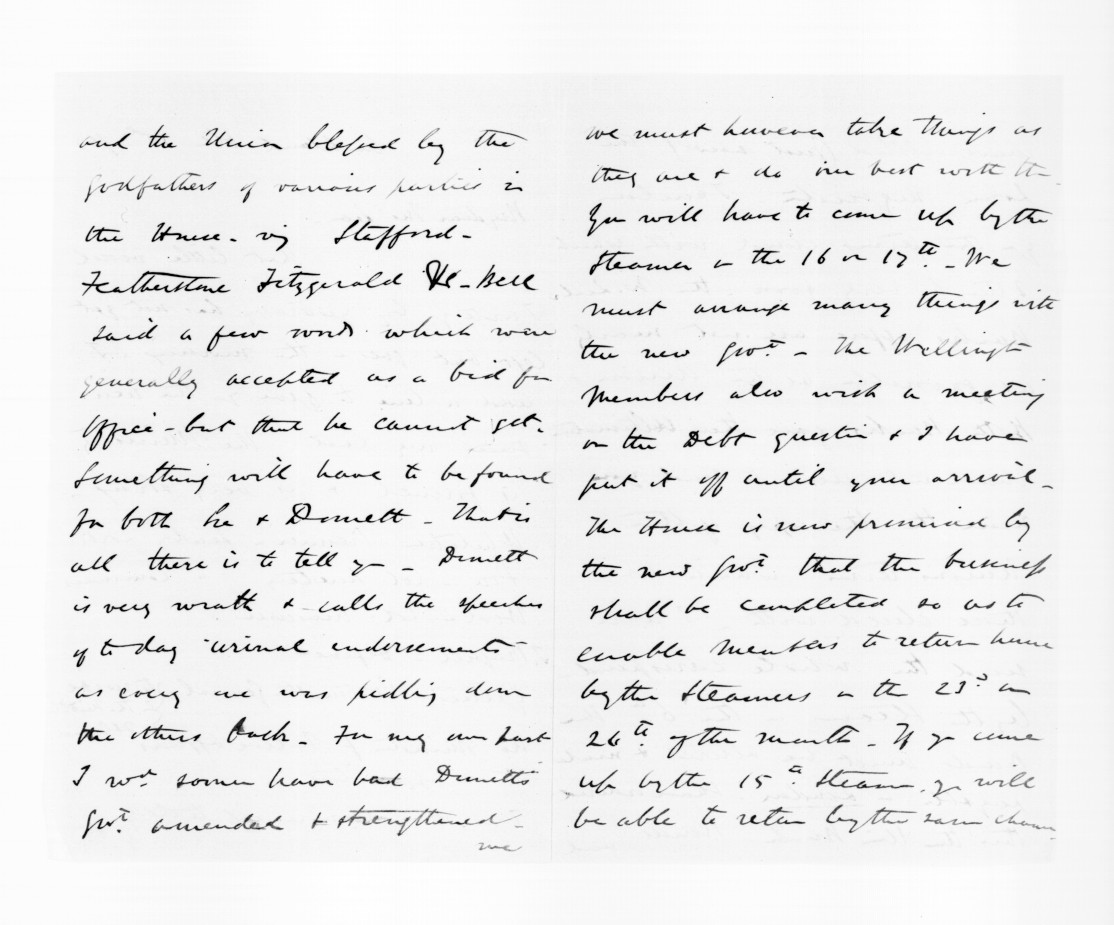 and the Union blessed by the
godfathers of various parties in
the House - viz Stafford -
Featherstone Fitzgerald &c - Bell
said a few words which were
generally accepted as a bid for
office - but that he cannot get.
Something will have to be found
for both he & Domett - That is
all there is to tell you - Domett
is very wrath & calls the speeches
of to day "urinal endorsements"
as every one was piddling down
the others back - For my own part
I wod. sooner have had Domett's
Govt. amended & strengthened -
we
we must however take things as
they are & do our best with th
You will have to come up by the
Steamer on the 16 or 17th - We
must arrange many things with
the new Govt. - The Wellington
Members also wish a meeting
on the Debt question & I have
put it off until your arrival -
The House is now promised by
the new Govt. that the business
shall be completed so as to
enable Members to return home
by the Steamers on the 23d or
26th. of the month - If you come
up by the 15th Steamer, you will
be able to return by the same